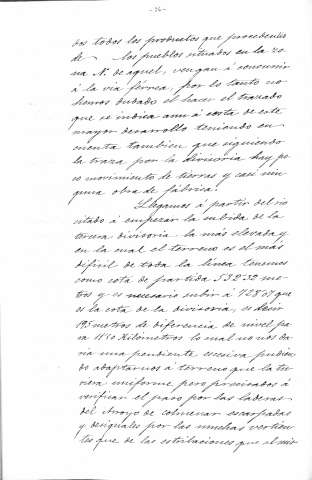 -36-
dos todos los productos que procedentes
de los pueblos situados en la zo-
na N. de aquel, vengan á concurrir
á la via férrea, por lo tanto no
hemos dudado el hacer el trazado
que se indica aun á costa de este
mayor desarrollo teniendo en
cuenta tambien que siguiendo
la traza por la divisoria hay po-
co movimiento de tierras y casi nin-
guna obra de fábrica.
Llegamos á partir del rio
citado á empezar la subida de la
tercera divisoria la más elevada y
en la cual el terreno es el más
dificil de toda la linea tenemos
como cota de partida 532'32 me-
tros y es necesario subir á 728'07 que
es la cota de la divisoria, es decir
195 metros de diferencia de nivel pa-
ra Kilómetros lo cual no nos da-
ria una pendiente escesiva pudien-
do adaptarnos á terreno que la tu-
viera uniforme pero precisados á
verificar el paso por las laderas
del Arroyo de Colmenar escarpadas
y desiguales por las muchas vertien-
tes que de las estribaciones que el mis-